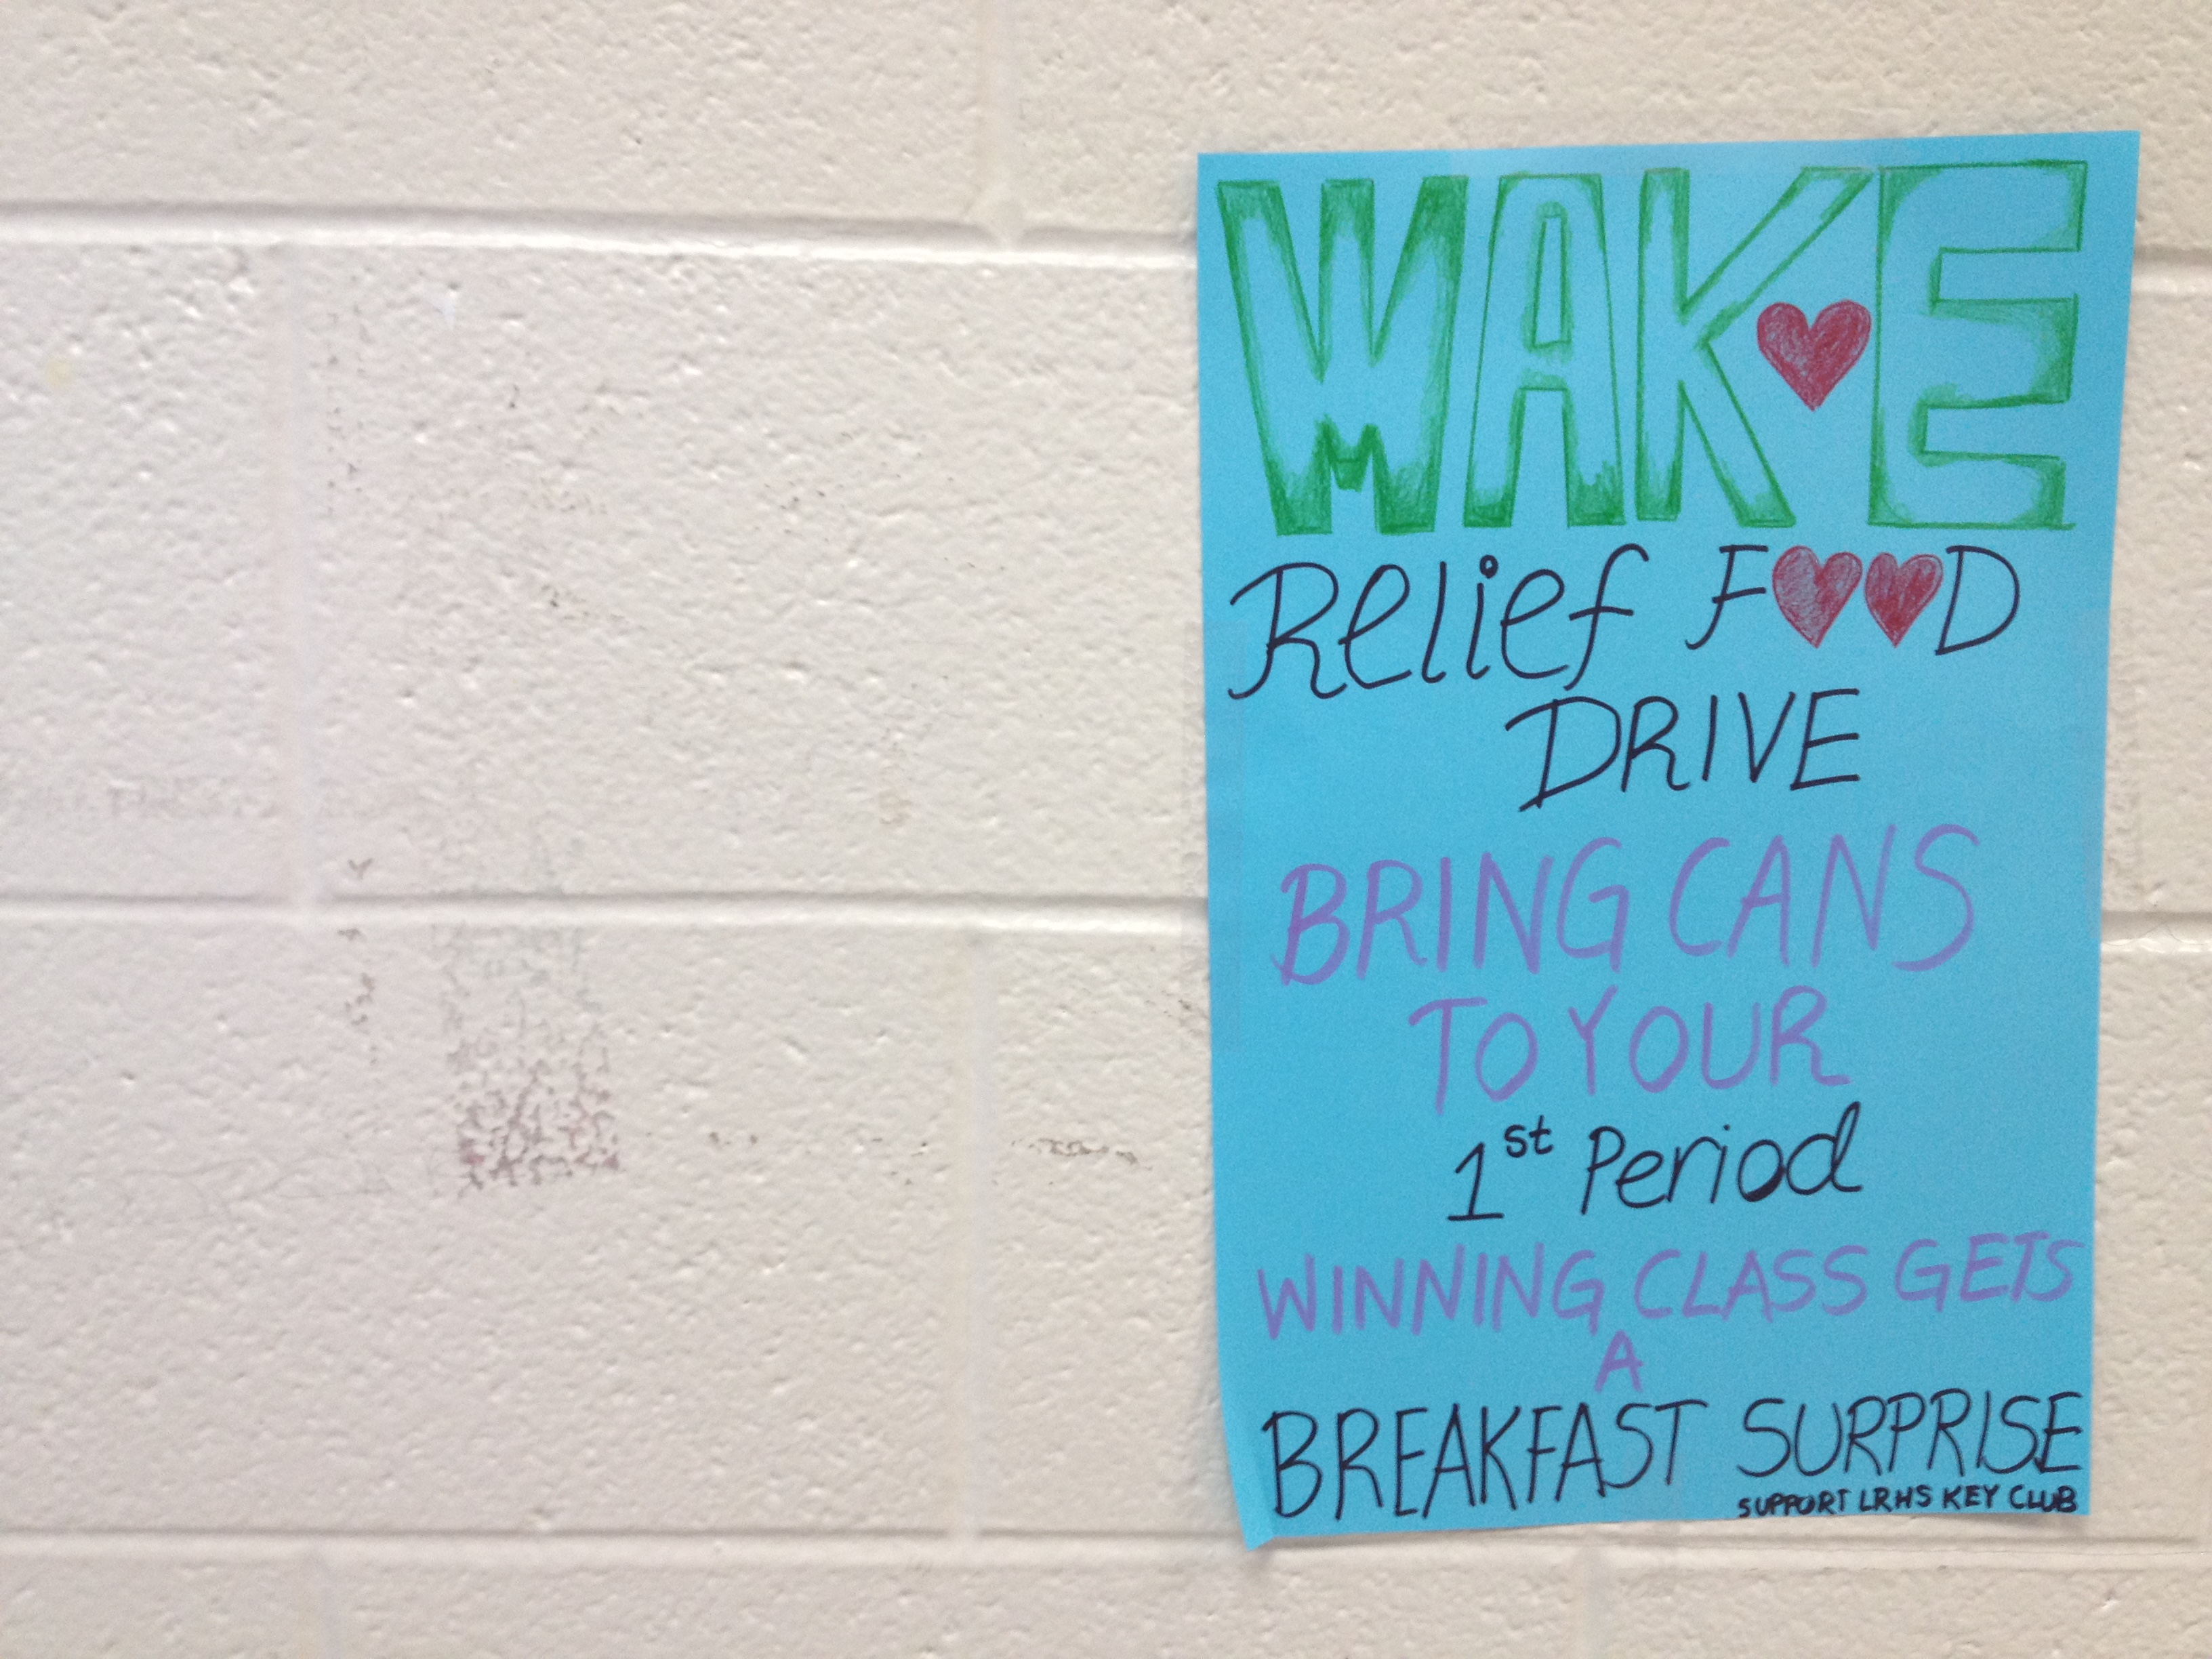 WAKE
Relief FOOD
DRIVE
BRING CANS
TO YOUR
1st Period
WINNING CLASS GETS
A
BREAKFAST SURPRISE
SUPPORT LRHS KEY CLUB